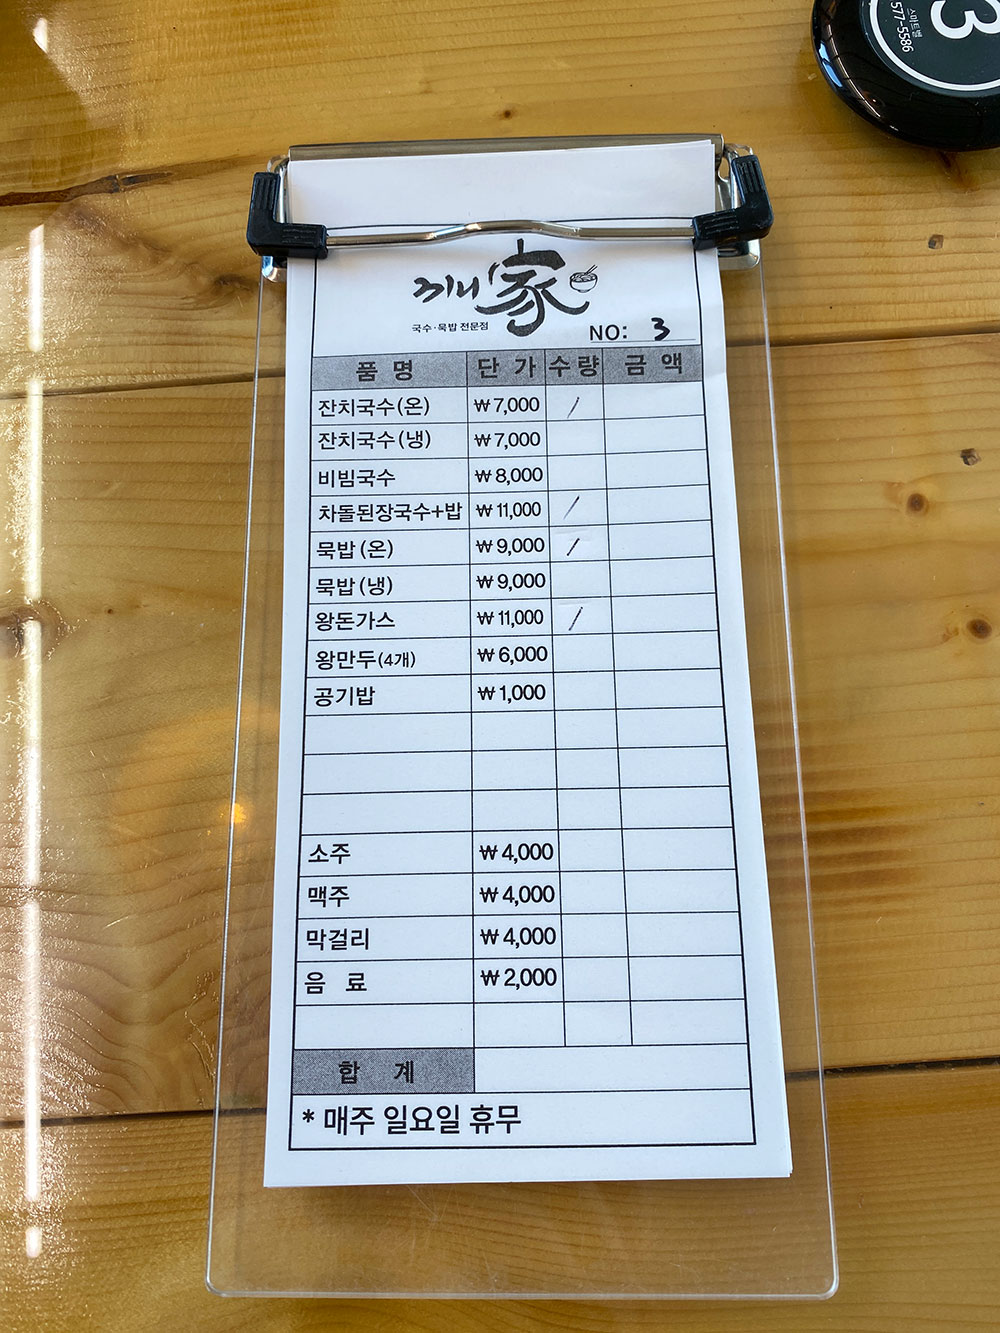 3
스마트벨
577-5586
끼니家
국수·묵밥 전문점
NO: 3
품 명 단 가 수량 금 액
잔치국수(온) ₩7,000 /
잔치국수(냉) ₩7,000
비빔국수 ₩8,000
차돌된장국수+밥 ₩11,000 /
묵밥(온) ₩9,000 /
묵밥(냉) ₩9,000
왕돈가스 ₩11,000 /
왕만두(4개) ₩6,000
공기밥 ₩1,000
소주 ₩4,000
맥주 ₩4,000
막걸리 ₩4,000
음 료 ₩2,000
합 계
* 매주 일요일 휴무